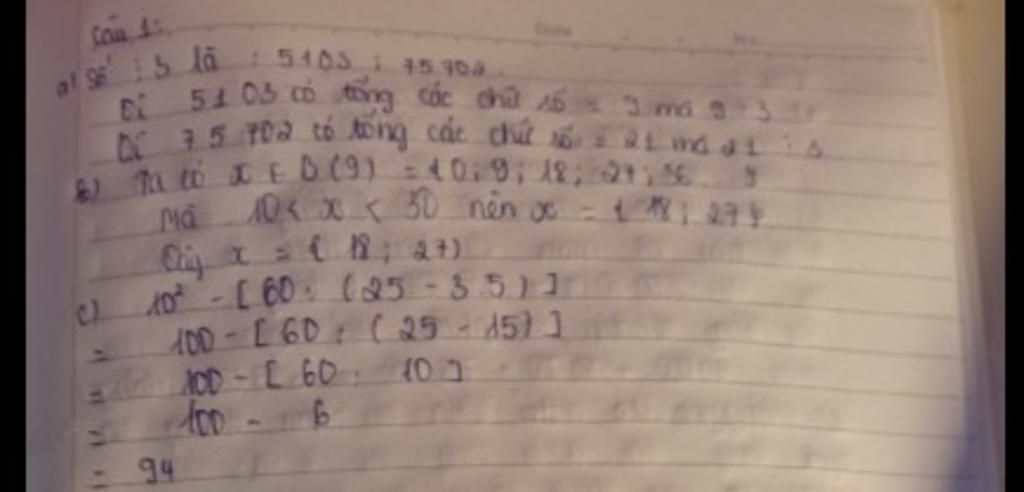 Câu 1:
a) Số : 3 là : 5103 ; 75702.
Vì 5103 có tổng các chữ số = 9 mà 9 : 3
Vì 75702 có tổng các chữ số = 21 mà 21 : 3
b) Ta có x ∈ B(9) = {0; 9; 18; 27; 36
Mà 10 < x < 30 nên x = { 18; 27}
Vậy x = { 18; 27}
c) 10² - [ 60 : (25 - 3.5) ]
= 100 - [ 60 : ( 25 - 15) ]
= 100 - [ 60 : 10 ]
= 100 - 6
= 94